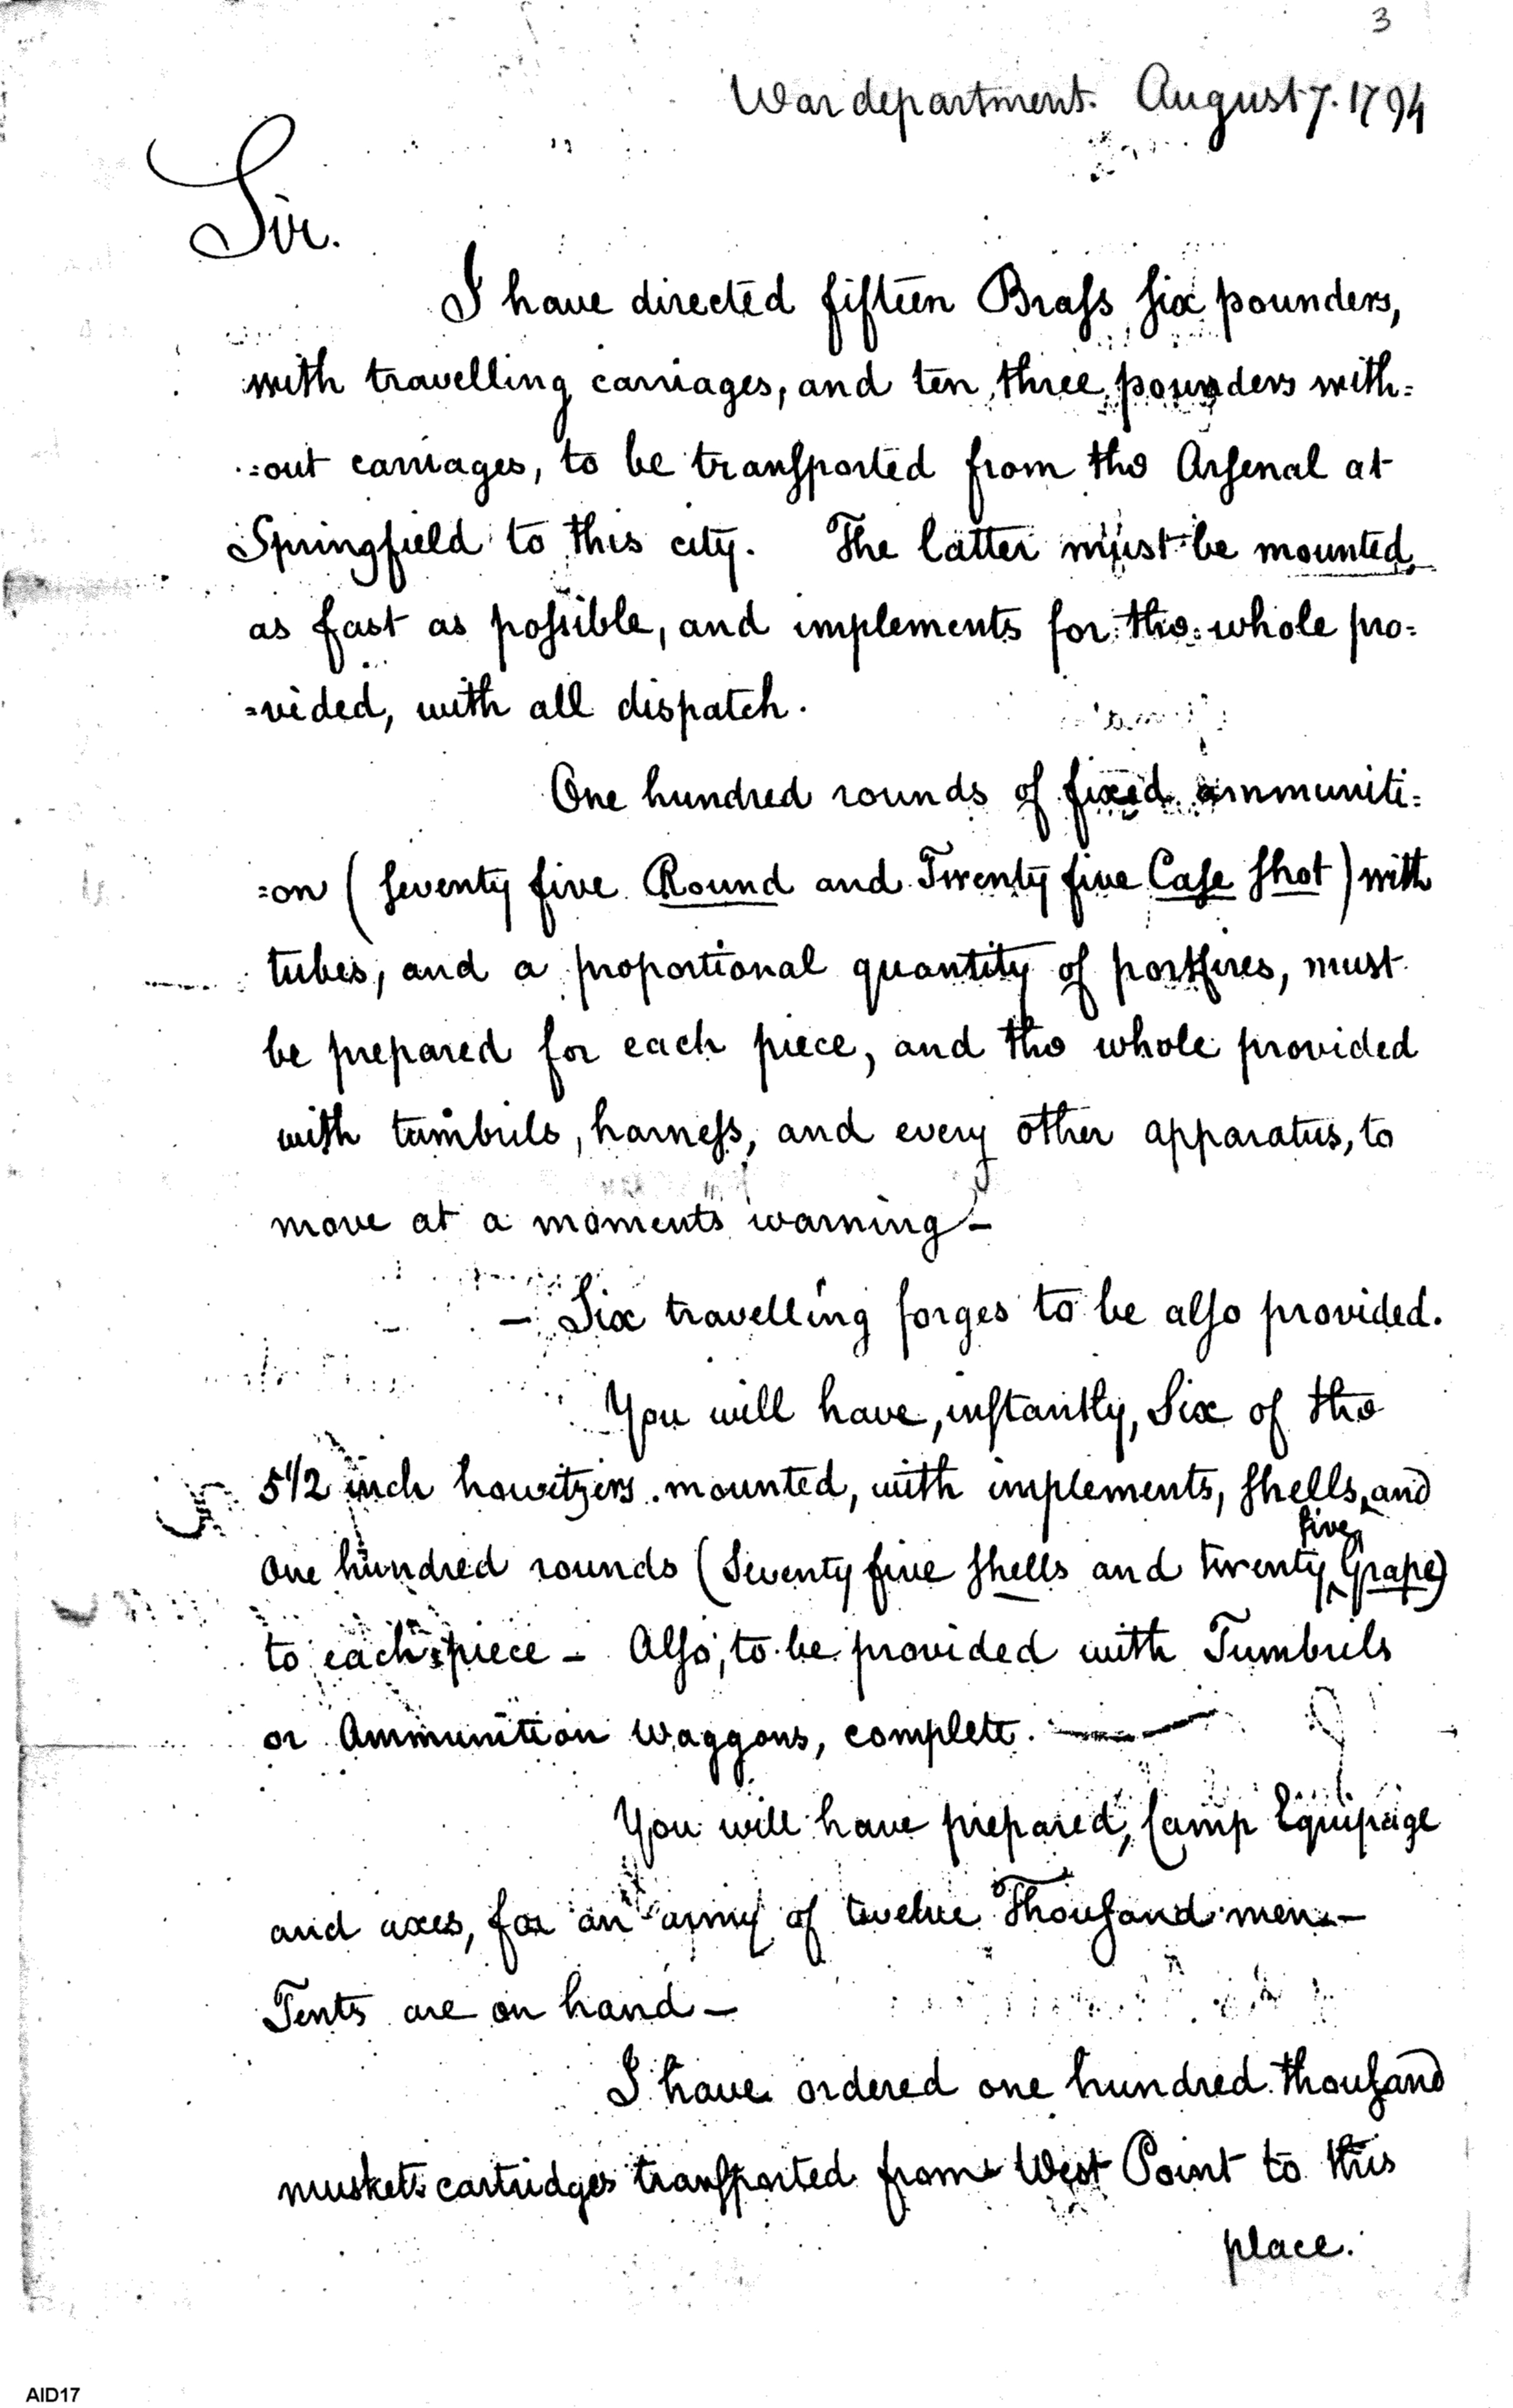 3
War department. August 7. 1794
Sir.
I have directed fifteen Braſs ſix pounders,
with travelling carriages, and ten three pounders with=
=out carriages, to be tranſported from the Arſenal at
Springfield to this city. The latter must be mounted,
as fast as poſsible, and implements for the whole pro=
=vided, with all dispatch.
One hundred rounds of fixed ammuniti=
=on (ſeventy five Round and Twenty five Caſe ſhot) with
tubes, and a proportional quantity of portfires, must
be prepared for each piece, and the whole provided
with tumbrils, harneſs, and every other apparatus, to
move at a moments warning –
– Six travelling forges to be alſo provided.
You will have, inſtantly, Six of the
5 1/2 inch howitzers mounted, with implements, ſhells, and
five
One hundred rounds (Seventy five ſhells and twenty ‸ Grape)
to each piece – Alſo, to be provided with Tumbrils
or Ammunition Waggons, complete. —
You will have prepared, Camp Equipage
and axes, for an army of twelve Thouſand men –
Tents are on hand –
I have ordered one hundred thouſand
musket cartridges tranſported from West Point to this
place.
AID17